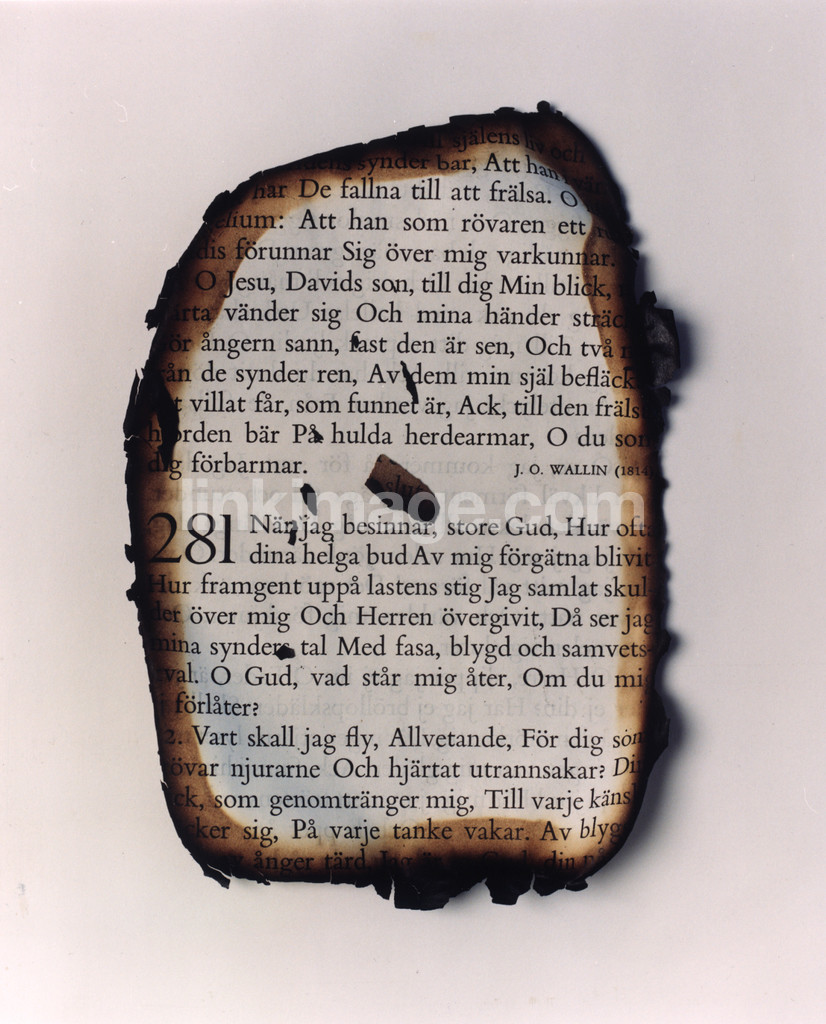 själens liv och
synder bar, Att han
har De fallna till att frälsa. O
elium: Att han som rövaren ett
dis förunnar Sig över mig varkunnar.
O Jesu, Davids son, till dig Min blick,
ärta vänder sig Och mina händer sträc
ör ångern sann, fast den är sen, Och två
ån de synder ren, Av dem min själ befläck
t villat får, som funnet är, Ack, till den fräls
hjorden bär På hulda herdearmar, O du son
dig förbarmar.
J. O. WALLIN (1814
slut
linkimage.com
281 När jag besinnar, store Gud, Hur oft
dina helga bud Av mig förgätna blivit
Hur framgent uppå lastens stig Jag samlat skul
der över mig Och Herren övergivit, Då ser jag
mina synders tal Med fasa, blygd och samvets-
kval. O Gud, vad står mig åter, Om du mig
ej förlåter?
2. Vart skall jag fly, Allvetande, För dig som
övar njurarne Och hjärtat utrannsakar? Di
ck, som genomtränger mig, Till varje käns
cker sig, På varje tanke vakar. Av blyg
av ånger tärd, Jag är, o Gud, din